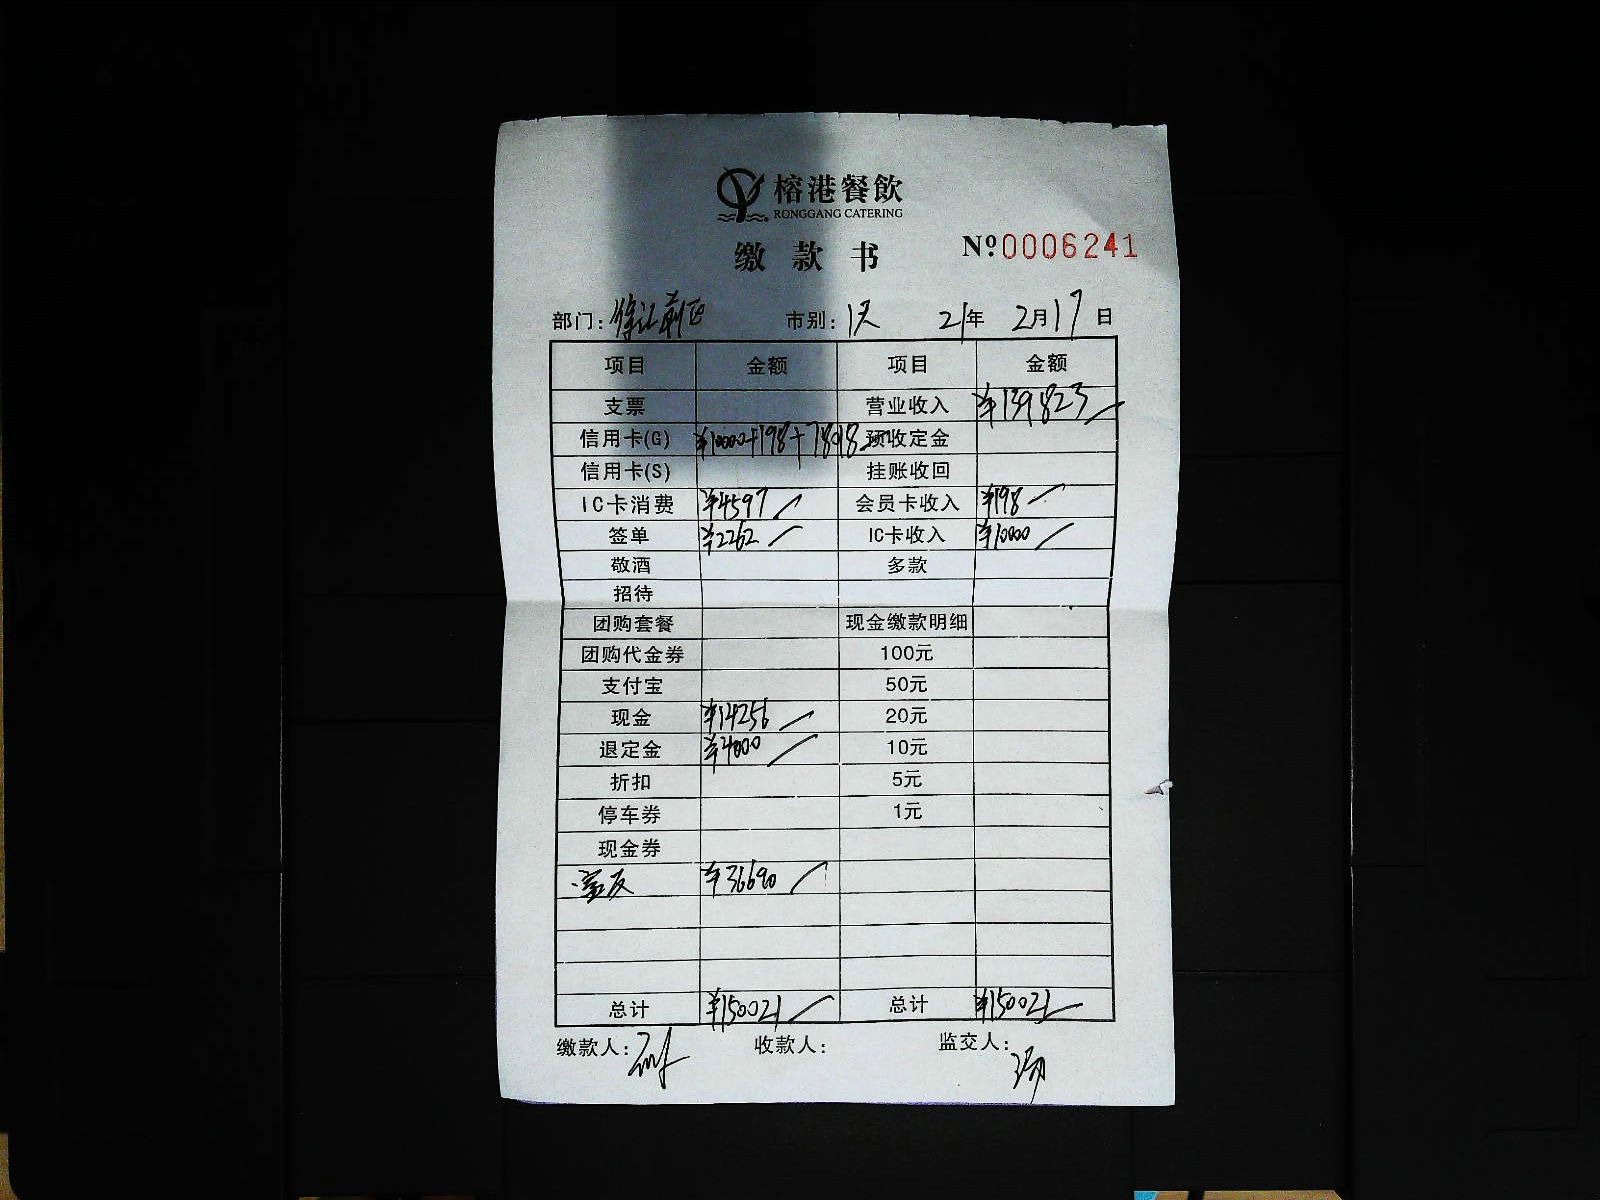 榕港餐飲
RONGGANG CATERING
缴款书
Nº0006241
部门: 市别: 21年 2月17日
项目 金额 项目 金额
支票 营业收入 ¥139823
信用卡(G) ¥10000+198+78018 预收定金
信用卡(S) 挂账收回
IC卡消费 ¥4597 会员卡收入 ¥198
签单 ¥2262 IC卡收入 ¥10000
敬酒 多款
招待
团购套餐 现金缴款明细
团购代金券 100元
支付宝 50元
现金 ¥14256 20元
退定金 ¥4000 10元
折扣 5元
停车券 1元
现金券
¥36690
总计 ¥150021 总计 ¥150021
缴款人: 收款人: 监交人: